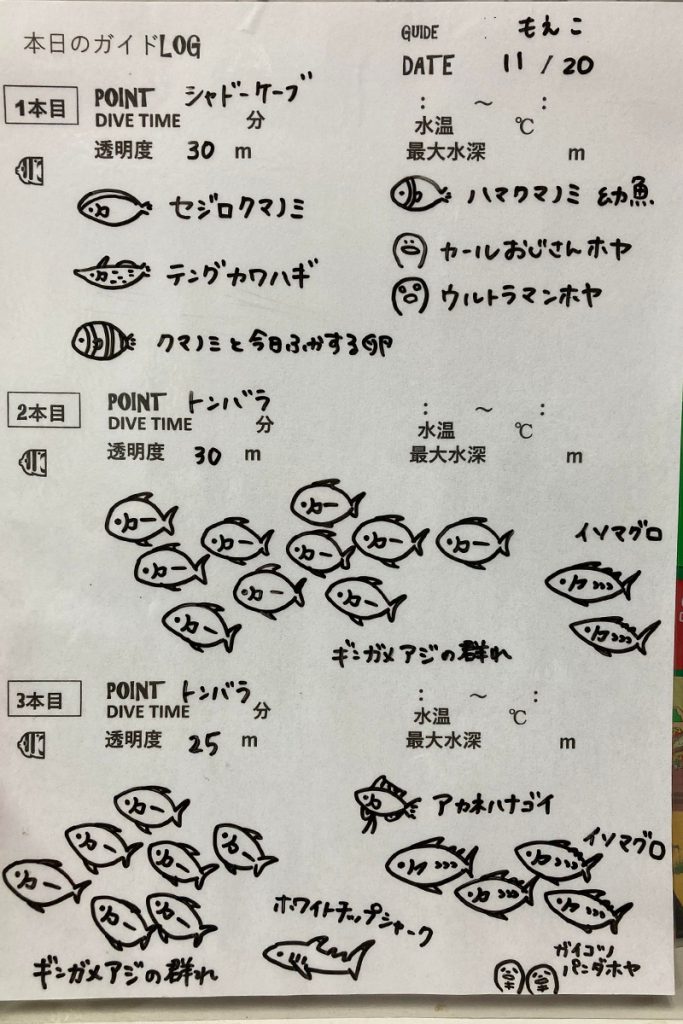 本日のガイドLOG
GUIDE もえこ
DATE 11 / 20
1本目 POINT シャドーケーブ : ～ :
DIVE TIME 分 水温 ℃
透明度 30 m 最大水深 m
セジロクマノミ
ハマクマノミ 幼魚
カールおじさんホヤ
テングカワハギ
ウルトラマンホヤ
クマノミと今日ふかする卵
2本目 POINT トンバラ : ～ :
DIVE TIME 分 水温 ℃
透明度 30 m 最大水深 m
イソマグロ
ギンガメアジの群れ
3本目 POINT トンバラ : ～ :
DIVE TIME 分 水温 ℃
透明度 25 m 最大水深 m
アカネハナゴイ
イソマグロ
ホワイトチップシャーク
ギンガメアジの群れ
ガイコツ
パンダホヤ